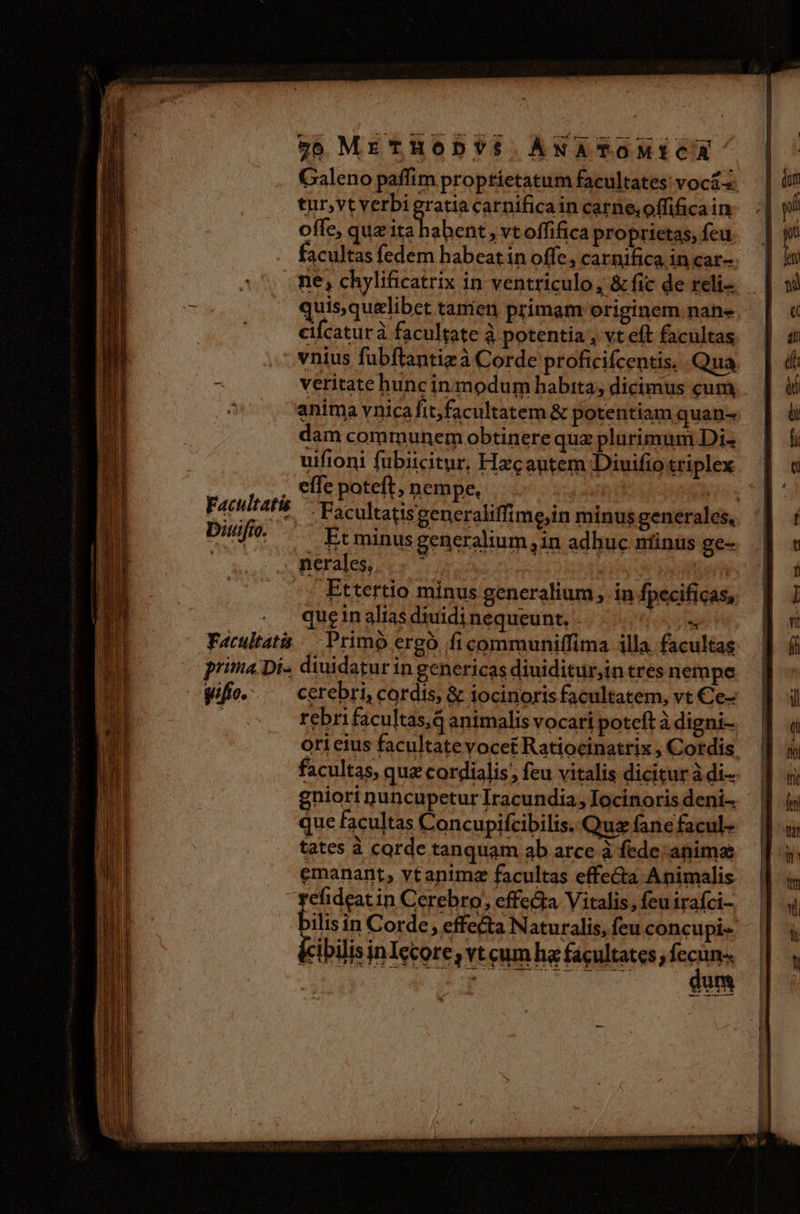 50 METHODVS ANATOMICA
Galeno passim proprietatum facultates vocã-
tur, vt verbi gratia carnifica in carne, ossifica in
osse, quæ ita habent, vt ossifica proprietas, seu
facultas sedem habeat in osse, carnifica in car-
ne, chylificatrix in ventriculo, & sic de reli-
quis, quælibet tamen primam originem nan-
ciscatur à facultate à potentia, vt est facultas
vnius substantiæ à Corde proficiscentis. Qua
veritate hunc in modum habita, dicimus cum
anima vnica sit, facultatem & potentiam quan-
dam communem obtinere quæ plurimum Di-
uisioni subiicitur. Hæc autem Diuisio triplex
esse potest, nempe,
Facultatis Diuisio.
Facultatis generalissimę, in minus generales.
Et minus generalium, in adhuc minus ge-
nerales,
Et tertio minus generalium, in specificas,
quę in alias diuidi nequeunt.
Facultatis prima Di-uisio.
Primò ergò si communissima illa facultas
diuidatur in genericas diuiditur, in tres nempe
cerebri, cordis, & iocinoris facultatem, vt Ce-
rebri facultas, q̃ animalis vocari potest à digni-
ori eius facultate vocet Ratiocinatrix, Cordis
facultas, quæ cordialis, seu vitalis dicitur à di-
gniori nuncupetur Iracundia, Iocinoris deni-
que facultas Concupiscibilis. Quæ sane facul-
tates à corde tanquam ab arce à sede animæ
emanant, vt animæ facultas effecta Animalis
resideat in Cerebro, effecta Vitalis, seu irasci-
bilis in Corde, effecta Naturalis, seu concupi-
scibilis in Iecore, vt cum hæ facultates, secun-
dum